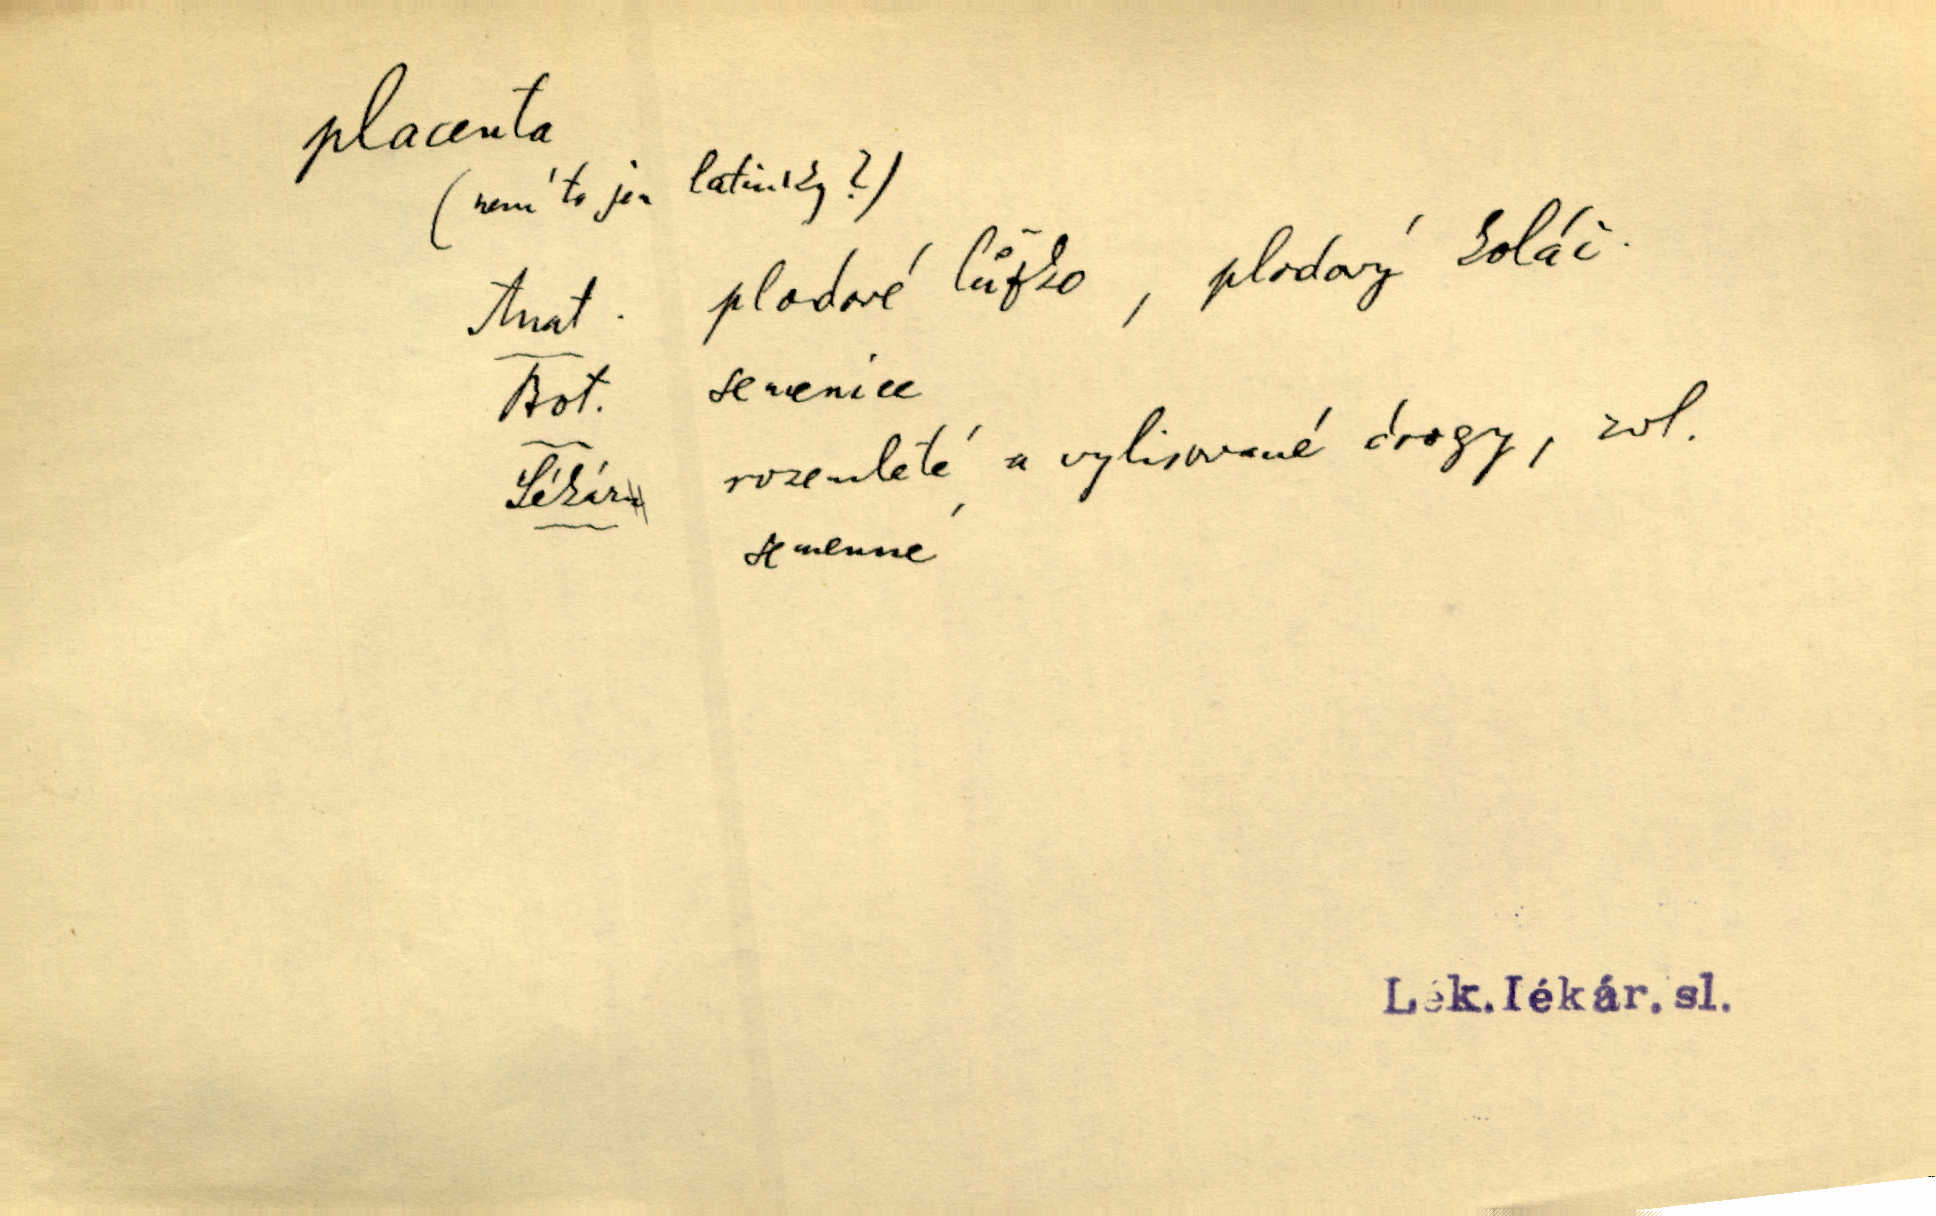 placenta
(není to jen latinsky?)
Anat. plodové lůžko, plodový koláč.
Bot. semenice
Lékárn rozemleté a vylisované drogy, zvl.
semenné
Lék.lékár.sl.